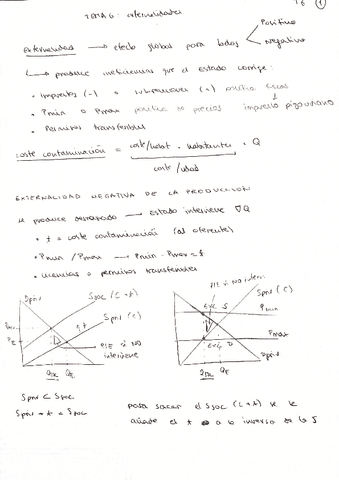 T6 1
TEMA 6: externalidades
Externalidad → efecto global para todos
Positivo
Negativo
↳ produce ineficiencias que el estado corrige:
• Impuestos (-) o subvenciones (+) política fiscal
• Pmin o Pmax política de precios impuesto pigouviano
• Permisos transferibles
coste contaminación = coste/habit. · habitantes · Q
coste/udad
EXTERNALIDAD NEGATIVA DE LA PRODUCCION
se produce demasiado → estado interviene ∇Q
• t = coste contaminación (al oferente)
• Pmin / Pmax → Pmin - Pmax = t
• licencias o permisos transferibles
Dpriv
Ssoc (C+t)
Spriv (C)
Pmin
PE
PIE si NO interviene
QSOC
QE
PIE si NO interv.
Spriv (C)
Pmin
Exc S
Pmax
Exc D
Dpriv
QSOC
QE
Spriv < Ssoc
Spriv + t = Ssoc
para sacar el Ssoc (C+t) se le
añade el t a la inversa de la S